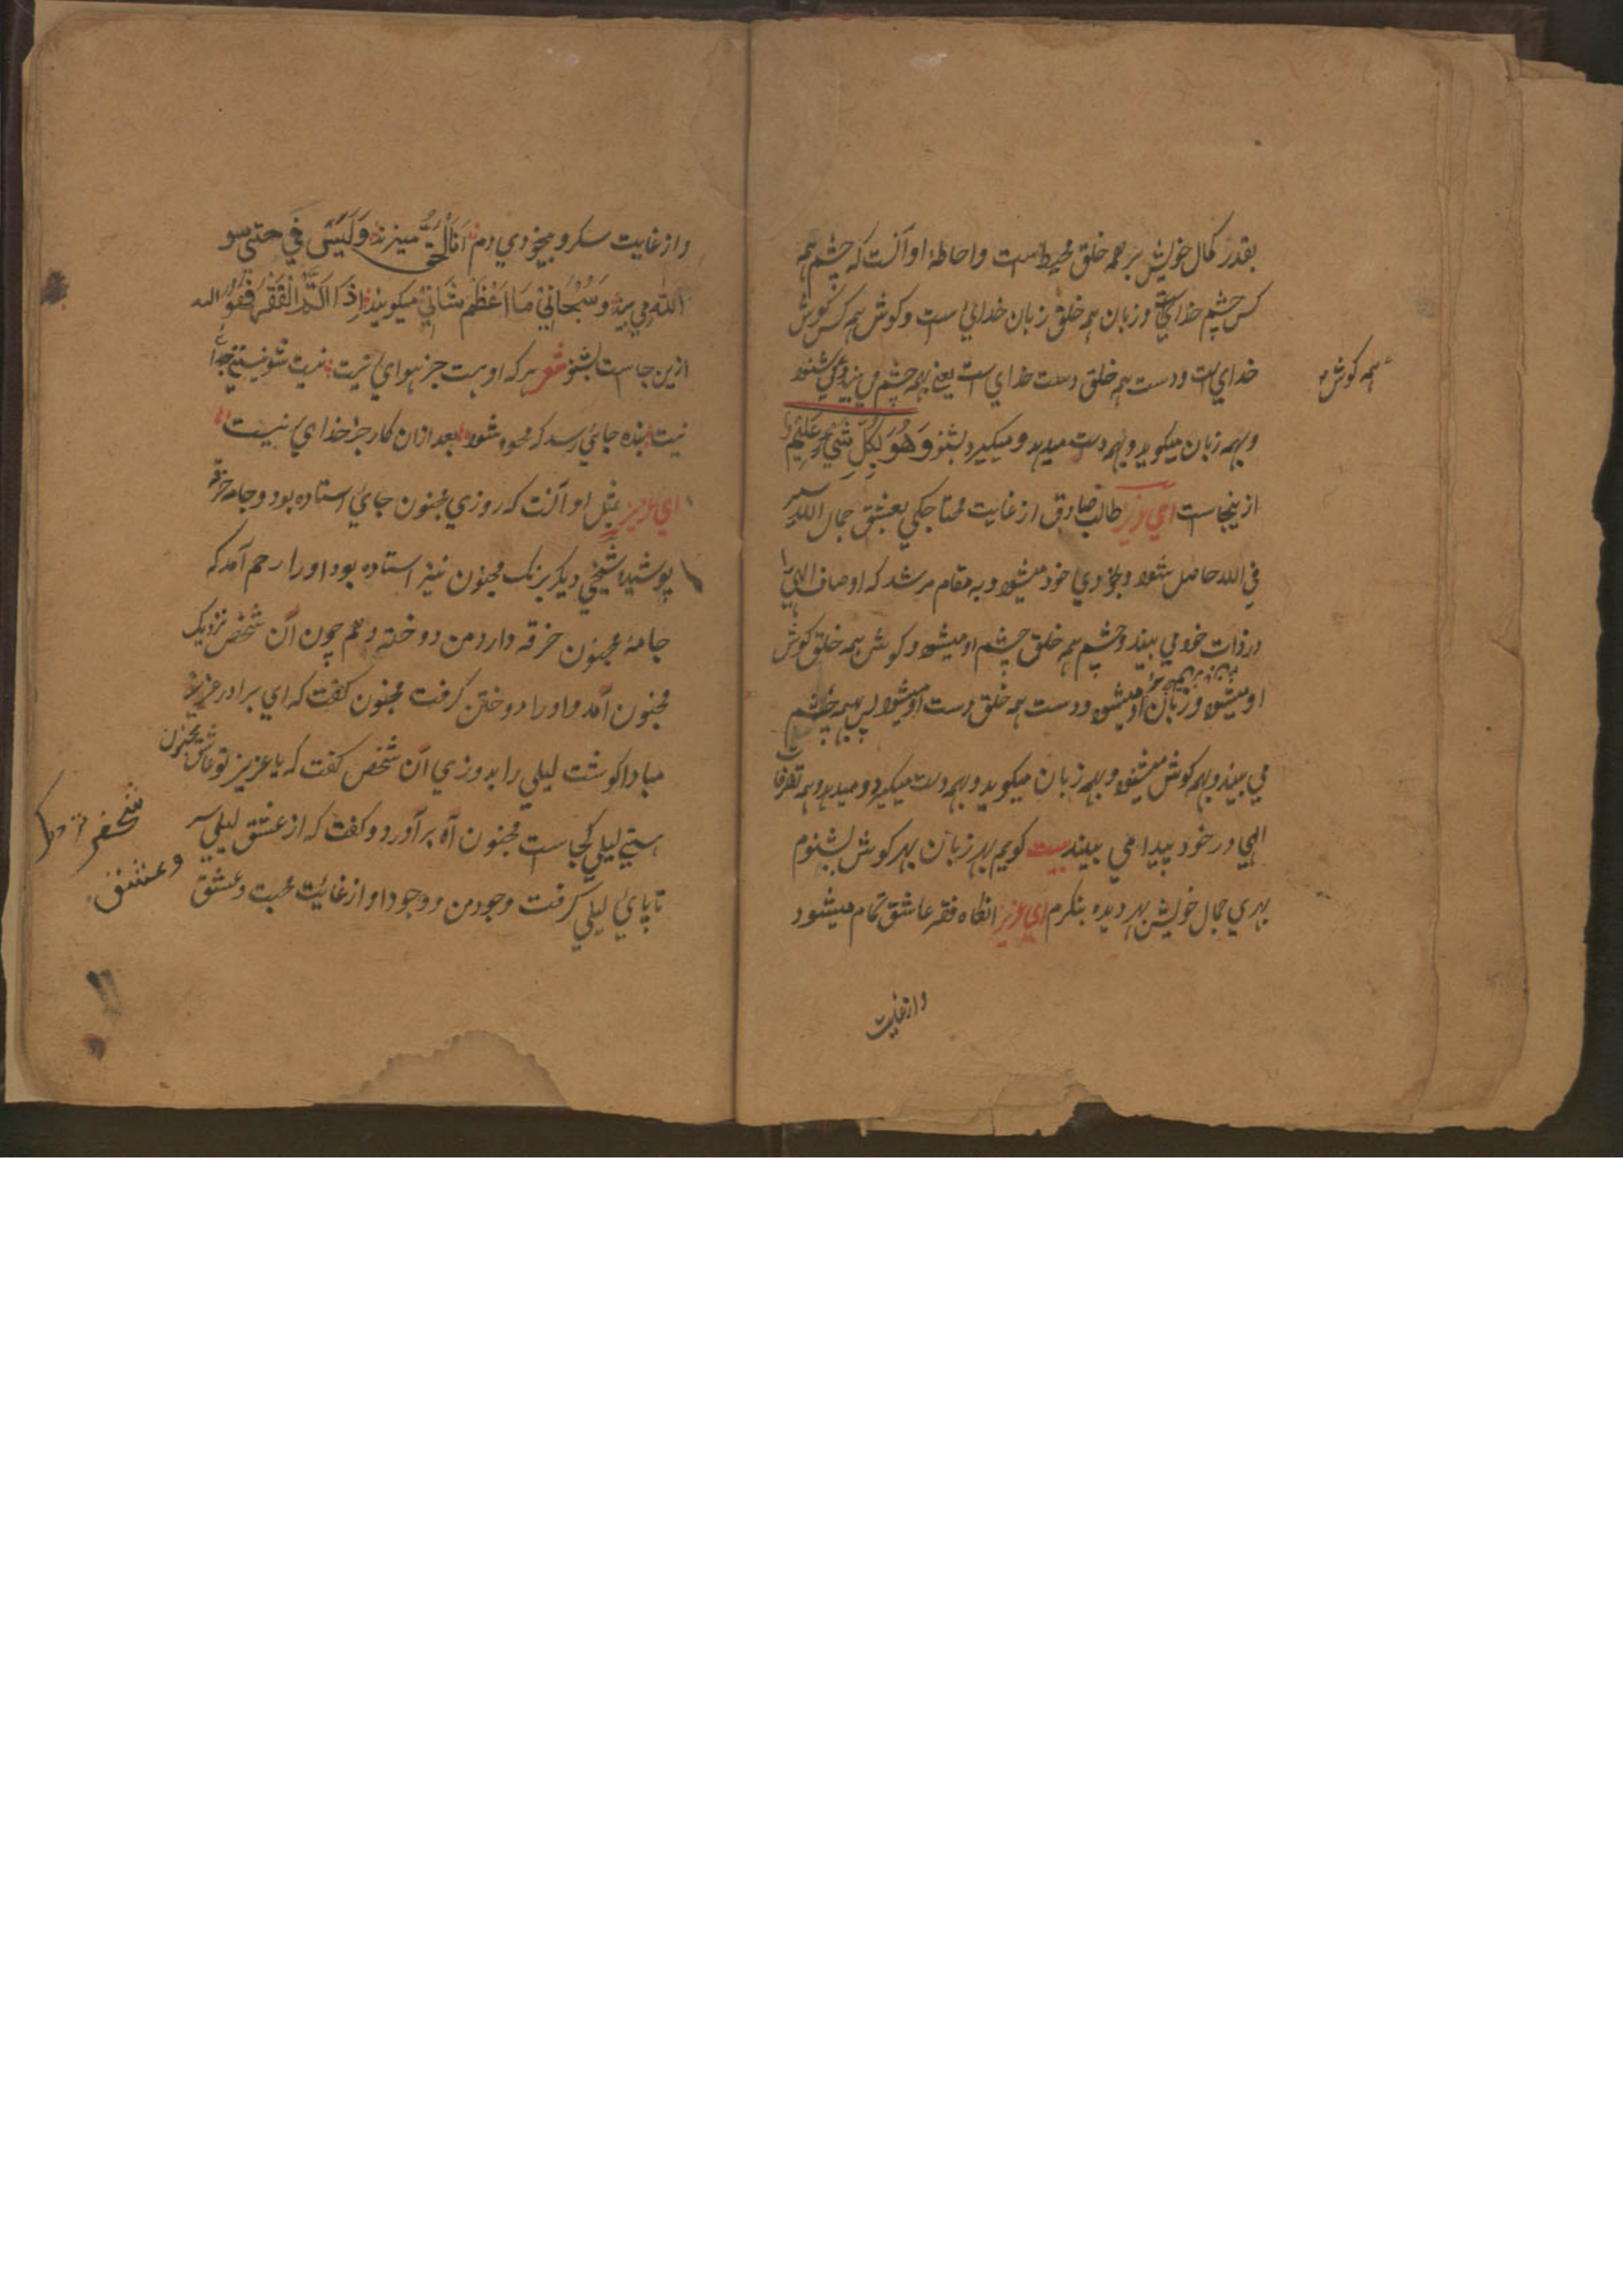 بقدر کمال خویش بر همه خلق محیط است و احاطهٔ او آنست که چشم همه
کس چشم خدای است و زبان همه خلق زبان خدای است و کوش همه کس کوش
خدای است و دست همه خلق دست خدای است یعنی بهمه چشم می بیند و می شنود
همه کوش
و بهمه زبان میکوید و بهمه دست میدهد و میکیرد بشنو وَهُوَ بِكُلِّ شَيْءٍ عَلِيمٌ
ازینجاست ای عزیز طالب صادق از غایت محتاجکی بعشق جمال الله سیر
فی الله حاصل شود و بیخودی خود میشود و به مقام مرشد که اوصاف الهی را
در ذات خود می بیند و چشم همه خلق چشم او میشود و کوش همه خلق کوش
او میشود و زبان او میشود و دست همه خلق دست او میشود پس بهمه چشم
می بیند و بهمه کوش میشنود و بهمه زبان میکوید و بهمه دست میکیرد و میدهد و همه تصرفات
الهی در خود پیدا می بیند بیت کویم بهر زبان بهر کوش بشنوم
بهری جمال خویش بهر دیده بنکرم ای عزیز انکاه فقر عاشق تمام میشود
و از غایت
و از غایت سکر و بیخودی دم اَنَا الْحَقُّ میزند وَلَیْسَ فِي جبتی سو
الله می بیند وَ سُبْحَانِيْ مَا اَعْظَمَ شَانِيْ میکویند اِذَا اَتَمَّ الْفَقْرُ فَهُوَ الله
ازین جاست بشنو شعر هر که او هست جز هوای نیست نیست شو نیستی جدا
نیست بنده جایی رسد که محو شود بعد ازان کار جز خدای نیست
ای عزیز مثل او آنست که روزی مجنون جای استاده بود و جامه خرقه
پوشیده شخصی دیکر بنزدیک مجنون نیز استاده بود او را رحم آمد که
جامهٔ مجنون خرقه دارد من دوخته دهم چون آن شخص نزدیک
مجنون آمد و او را دوختن کرفت مجنون کفت که ای برادر عزیز
مبادا کوشت لیلی را بدوزی آن شخص کفت که یا عزیز تو عاشق مجنون
هستی لیلی کجاست مجنون آه برآورد و کفت که از عشق لیلی سر
تا پای لیلی کرفت وجود من و وجود او از غایت محبت و عشق
وعشق